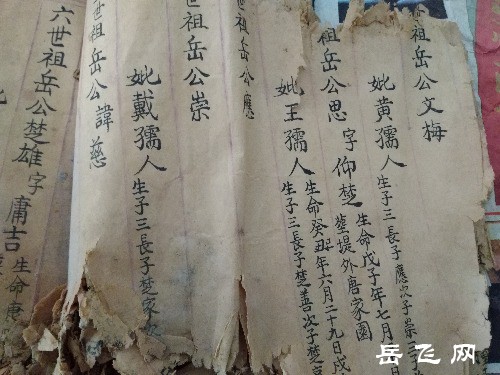 祖岳公文梅
妣黄孺人生子三長子應次子崇三
生命戊子年七月
祖岳公思字仰楚塟堤外唐家園
生命癸丑年六月二十九日戌
妣王孺人生子三長子楚善次子楚
世祖岳公應
祖岳公崇
妣戴孺人生子三長子楚家次
世祖岳公諱慈
六世祖岳公楚雄字庸吉生命庚
岳飞网